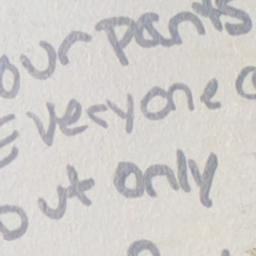 our pants
Everyone
out only